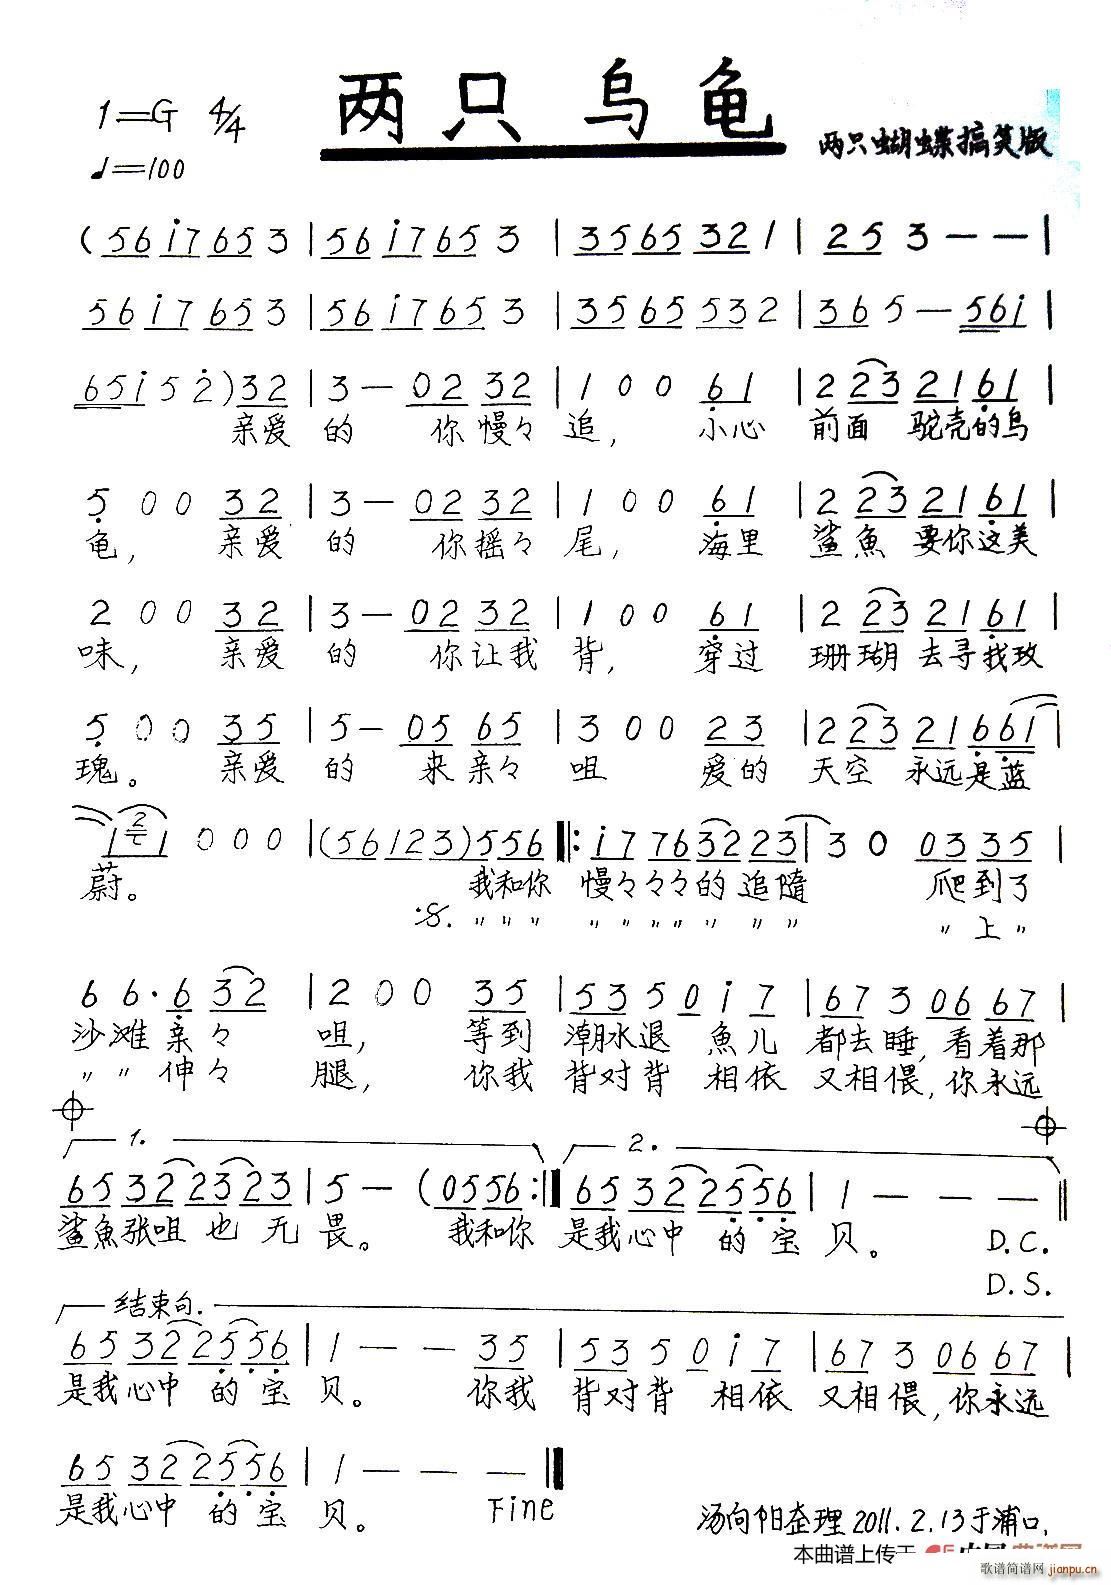 两只乌龟
1=G 4/4
♩=100
两只蝴蝶搞笑版
(56i7653|56i7653|3565321|253--|
56i7653|56i7653|3565532|365-56i|
65i52)32|3-0232|10061|2232161|
亲爱的 你慢々追, 小心 前面 驼壳的乌
50032|3-0232|10061|2232161|
龟, 亲爱的 你摇々尾, 海里 鲨魚 要你这美
20032|3-0232|10061|2232161|
味, 亲爱的 你让我背, 穿过 珊瑚去寻我玫
50035|5-0565|30023|22321661|
瑰。 亲爱的 来亲々咀 爱的 天空 永远是蓝
1 2/7 1 000|(56123)556‖:i776322323|30 0335|
蔚。 我和你 慢々々々的追隨 爬到了
:S. 〃〃〃 〃〃〃〃〃〃〃 〃上〃
66·632|20035|5350i7|6730667|
沙滩亲々 咀, 等到潮水退 魚儿 都去睡,看着那
〃〃伸々 腿, 你我背对背 相依 又相偎,你永远
1. 2.
653222323|5-(0556:‖65322556|1---‖
鲨魚张咀也无畏。 我和你 是我心中的宝贝。 D.C.
D.S.
结束句.
65322556|1--35|5350i7|6730667|
是我心中的宝贝。 你我背对背 相依 又相偎,你永远
65322556|1---‖
是我心中的宝贝。 Fine
汤向阳整理2011.2.13于浦口,
本曲谱上传于
歌谱简谱网
jianpu.cn